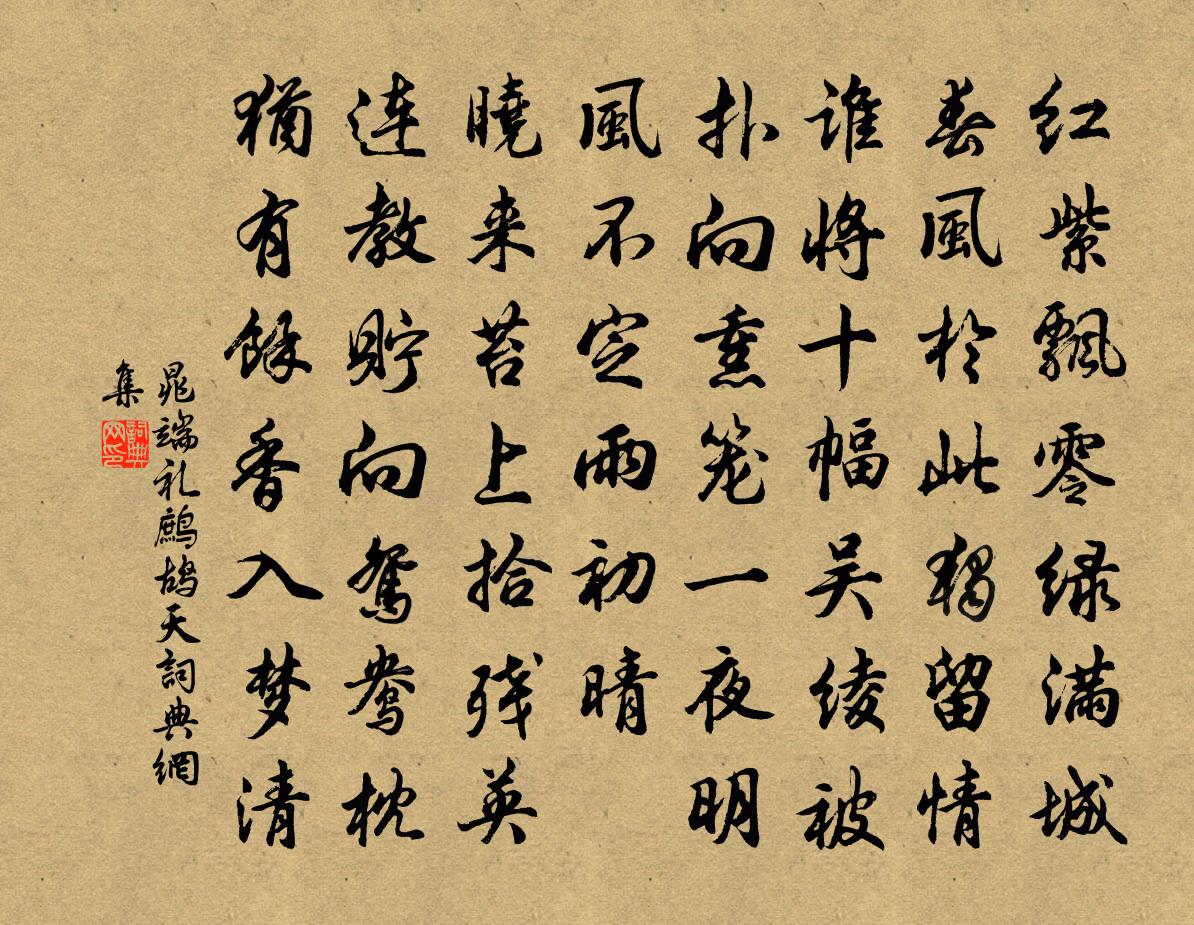 红紫飘零绿满城
春風於此獨留情
谁將十幅吴绫被
扑向熏笼一夜明
風不定雨初晴
曉来苔上拾残英
连教貯向鴛鴦枕
猶有餘香入梦清
晁端礼鷓鴣天詞典網
集
詞典网印